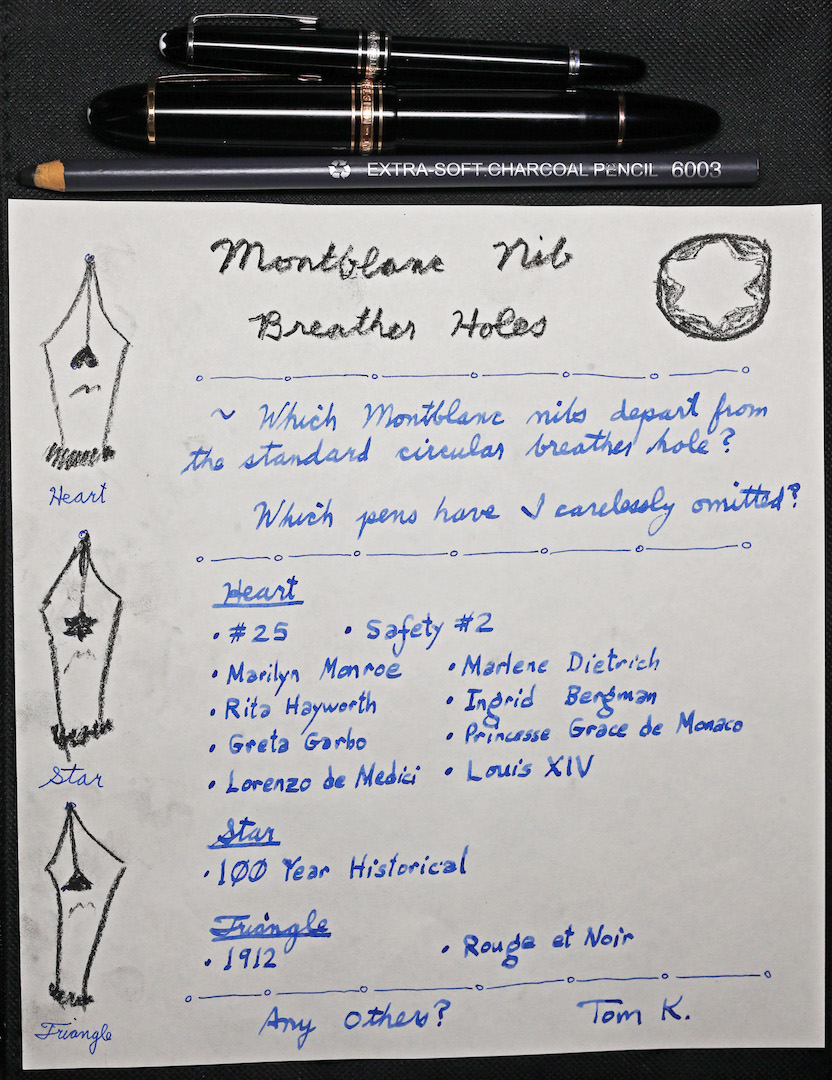 EXTRA-SOFT CHARCOAL PENCIL 6003
Montblanc Nib
Breather Holes
~ Which Montblanc nibs depart from
the standard circular breather hole?
Which pens have I carelessly omitted?
Heart
• #25 • Safety #2
• Marilyn Monroe • Marlene Dietrich
• Rita Hayworth • Ingrid Bergman
• Greta Garbo • Princesse Grace de Monaco
• Lorenzo de Medici • Louis XIV
Star
• 100 Year Historical
Triangle
• 1912 • Rouge et Noir
Any Others? Tom K.
Heart
Star
Triangle